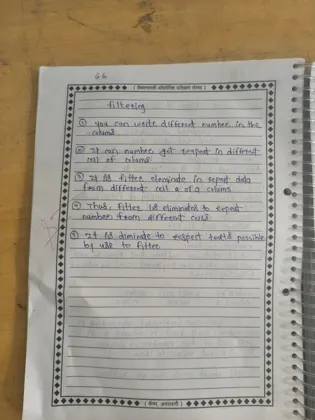 66
filtering
① you can write different number in the
colums
② It can number get respect in different
cell of colums
③ It is fitter eleminde in sepert data
from different cell a of a colums
④ Thus, fitter is eliminates to
number from different cells
⑤ It is diminate to respect possible
by use to fitter